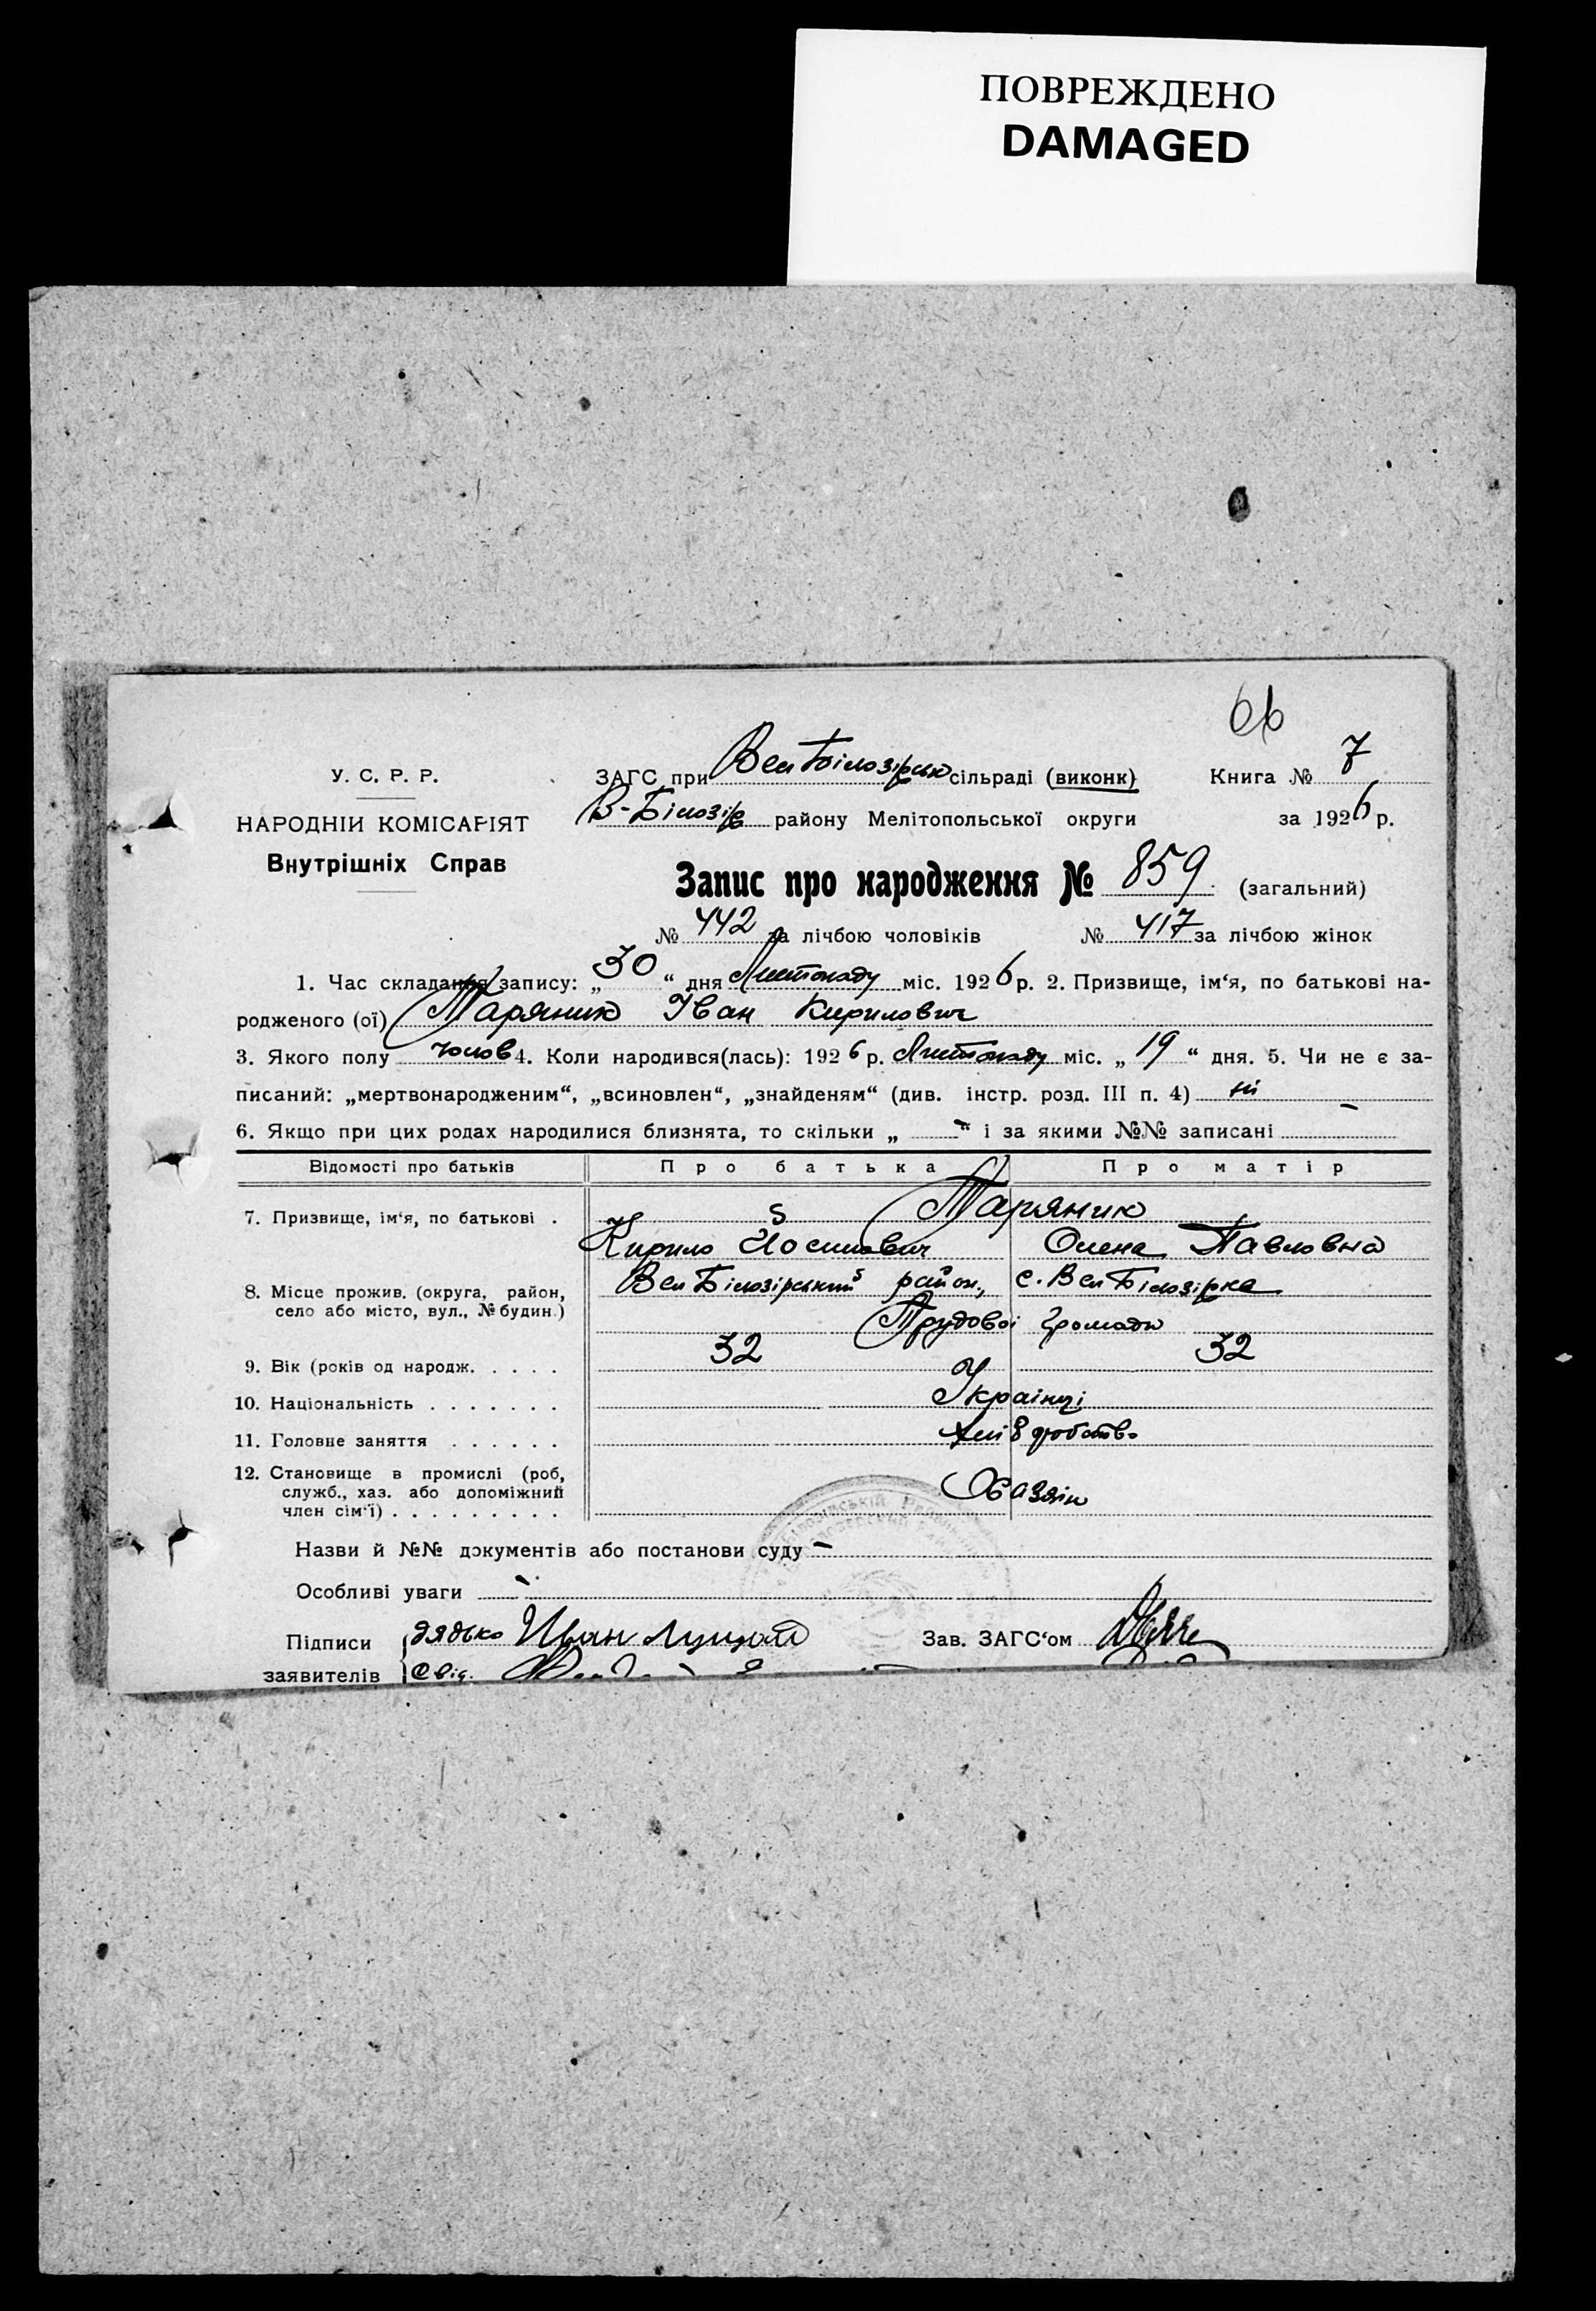 ПОВРЕЖДЕНО
DAMAGED
66
У. С. Р. Р.
НАРОДНІЙ КОМІСАРІЯТ
Внутрішніх Справ
ЗАГС при Вел Білозірськ сільраді (виконк) Книга № 7
В-Білозір району Мелітопольської округи за 1926 р.
Запис про народження № 859 (загальний)
№ 442 за лічбою чоловіків № 417 за лічбою жінок
1. Час складання запису: „ 30 “ дня Листопаду міс. 1926 р. 2. Призвище, ім‘я, по батькові на-
родженого (ої) Таряник Іван Кирилович
3. Якого полу чолов 4. Коли народився(лась): 1926 р. Листопаду міс. „ 19 “ дня. 5. Чи не є за-
писаний: „мертвонародженим“, „всиновлен“, „знайденям“ (див. інстр. розд. III п. 4) ні
6. Якщо при цих родах народилися близнята, то скільки „ - “ і за якими №№ записані -
Відомості про батьків Про батька Про матір
7. Призвище, ім‘я, по батькові . Таряник
Кирило Йосипович Олена Павловна
8. Місце прожив. (округа, район, Вел Білозірський район, с. Вел Білозірка
село або місто, вул., № будин.) Трудової громади
9. Вік (років од народж. . . . . 32 32
10. Національність . . . . . . . Українці
11. Головне заняття . . . . . . хліборобство
12. Становище в промислі (роб,
служб., хаз. або допоміжний Хазяін
член сім‘ї) . . . . . . . . .
Назви й №№ документів або постанови суду -
Особливі уваги -
Підписи дядько Иван Зав. ЗАГС‘ом
заявителів Свід.